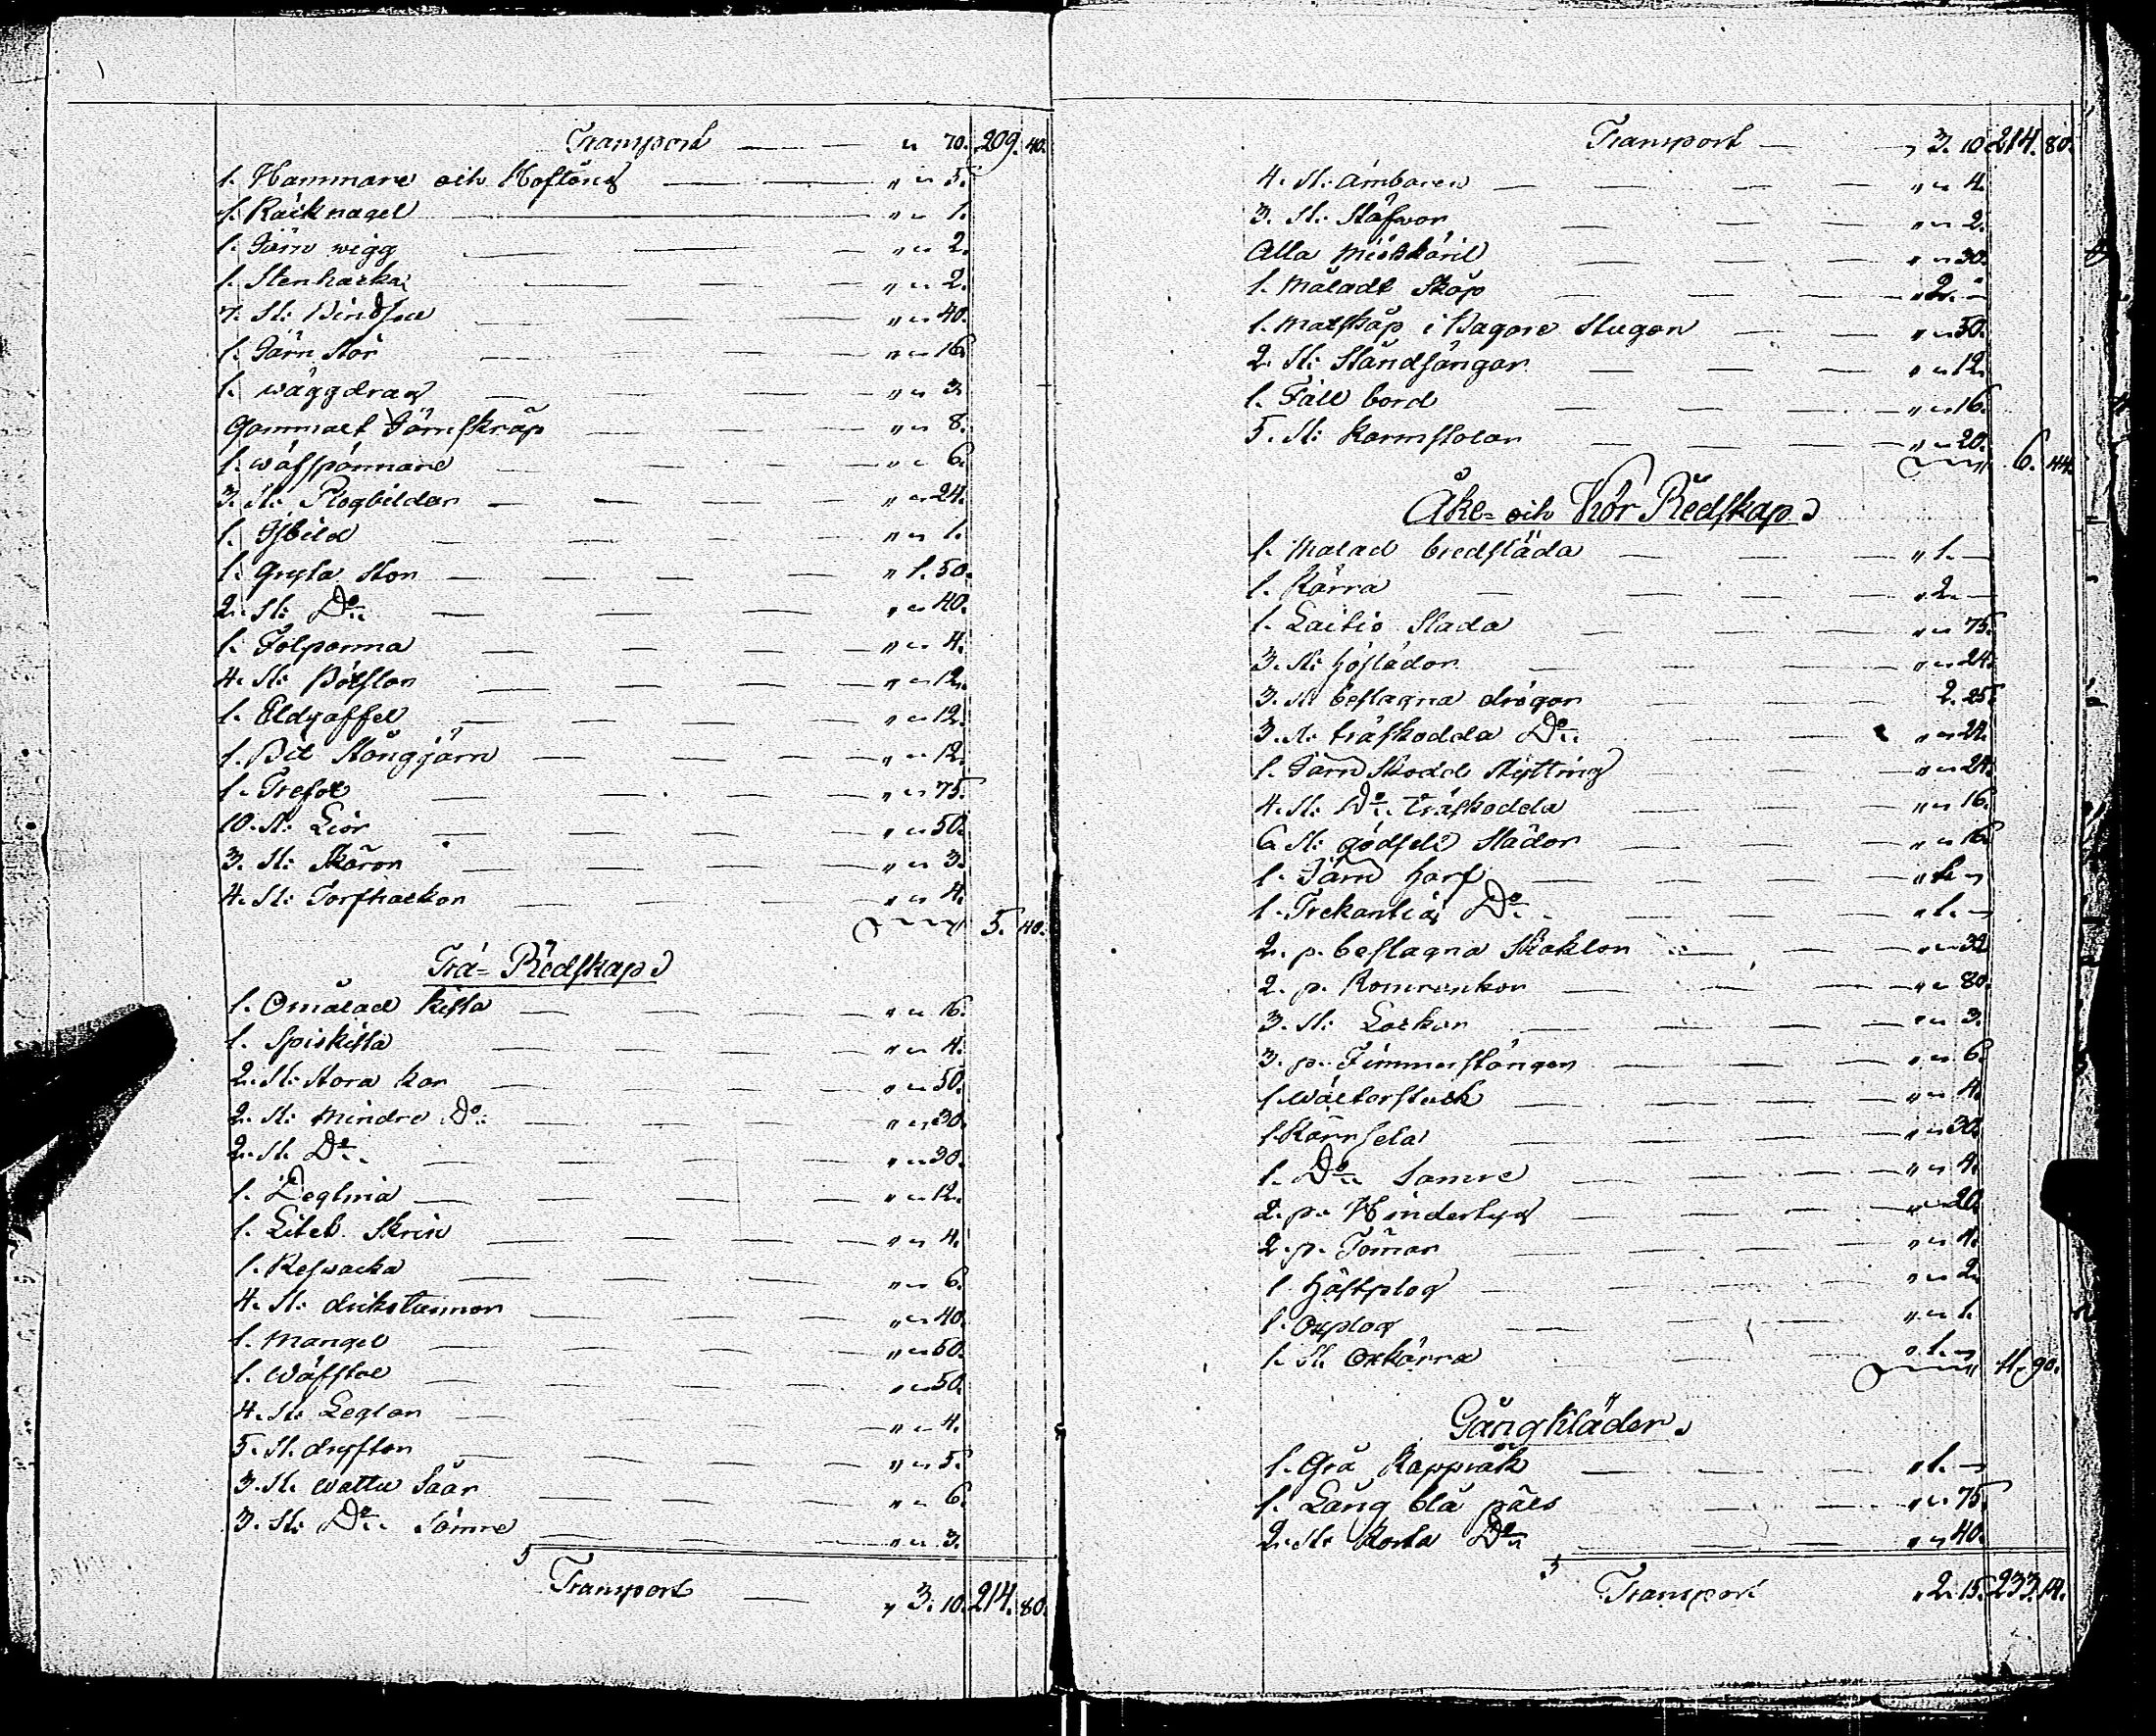 Transport — „ 70. 209. 40.
1. Hammare och Hoftång — „ „ 5.
1. Räcknagel — „ „ 1.
1. Järn wigg — „ „ 2.
1. Stenhacka — „ „ 2.
7. St: — „ „ 40.
1. Järn Stör — „ „ 16.
1. wäggdrag — „ „ 3.
Gammalt Järnskräp — „ „ 8.
1. wäfspännare — „ „ 6.
3. St: Plogbildar — „ „ 24.
1. Isbild — „ „ 1.
1. Gryta stor — „ 1. 50.
2. St: Do — „ „ 40.
1. Fölpanna — „ „ 4.
4. St: Bölston — „ „ 12.
1. Eldgaffel — „ „ 12.
1. Bit Stångjärn — „ „ 12.
1. Trefot — „ „ 75.
10. St: Liör — „ „ 50.
3. St: Skäror — „ „ 3.
4. St: Torfhackor — „ „ 4.
5. 40.
Trä-Redskap
1. Omålad kista — „ „ 16.
1. Spiskista — „ „ 4.
2. St: Stora kar — „ „ 50.
2. St: Mindre Do — „ „ 30.
2. St: Do — „ „ 30.
1. Degtina — „ „ 12.
1. Litet Skrin — „ „ 4.
1. Reswacka — „ „ 6.
4. St: dricks tunnor — „ „ 40.
1. Mangel — „ „ 50.
1. Wäfstol — „ „ 50.
4. St: Leglar — „ „ 4.
5. St. dryftor — „ „ 5.
3. St. wattu Såar — „ „ 6.
3. St: Do Sämre — „ „ 3.
Transport — „ 3. 10. 214. 80.
Transport — „ 3. 10 214. 80.
4. St: ämbaren — „ „ 4.
3. St: Stäfwor — „ „ 2.
Alla Miölkkäril — „ „ 30.
1. Måladt Skåp — „ 2. —
1. Matskåp i Bagare stugan — „ „ 50.
2. St: Ståndsängar — „ „ 12.
1. Fäll bord — „ „ 16.
5. St: Karmstolar — „ „ 20.
6. 44.
Åke- och Kör Redskap
1. Målad bredsläda — „ 1. —
1. Kärra — „ 2. —
1. Laitio Släda — „ „ 75.
3. St: hösläder — „ „ 24.
3. St beslagna drögar 2. 25.
3. St: träskodda Do — „ „ 24.
1. Järn Skodd Stytting — „ „ 24.
4. St: Do träskodda — „ „ 16.
6 St: gödsel Slädor — „ „ 16.
1. Järn harf — „ 1. —
1. Trekantig Do — „ 1. —
2. p. beslagna Skaklor — „ „ 32
2. p. — „ „ 80.
3. St: Lockor — „ „ 3.
3. p. Timmerstänger — „ „ 6.
1 Wältorstuck — „ „ 4.
1 Kärrsela — „ „ 30.
1. Do Samre — „ „ 4.
2. p. Hindertyg — „ „ 20.
2. p. Tömar — „ „ 4.
1 Hästplog — „ „ 2.
1. Oxplog — „ „ 1.
1. St. Oxkärra — „ 1. —
11. 90.
Gångkläder
1. Grå Kappråk — „ 1. —
1. Lång blå päls — „ „ 75.
2. St: Korta Do — „ „ 40.
Transport „ 2. 15. 233. 14.